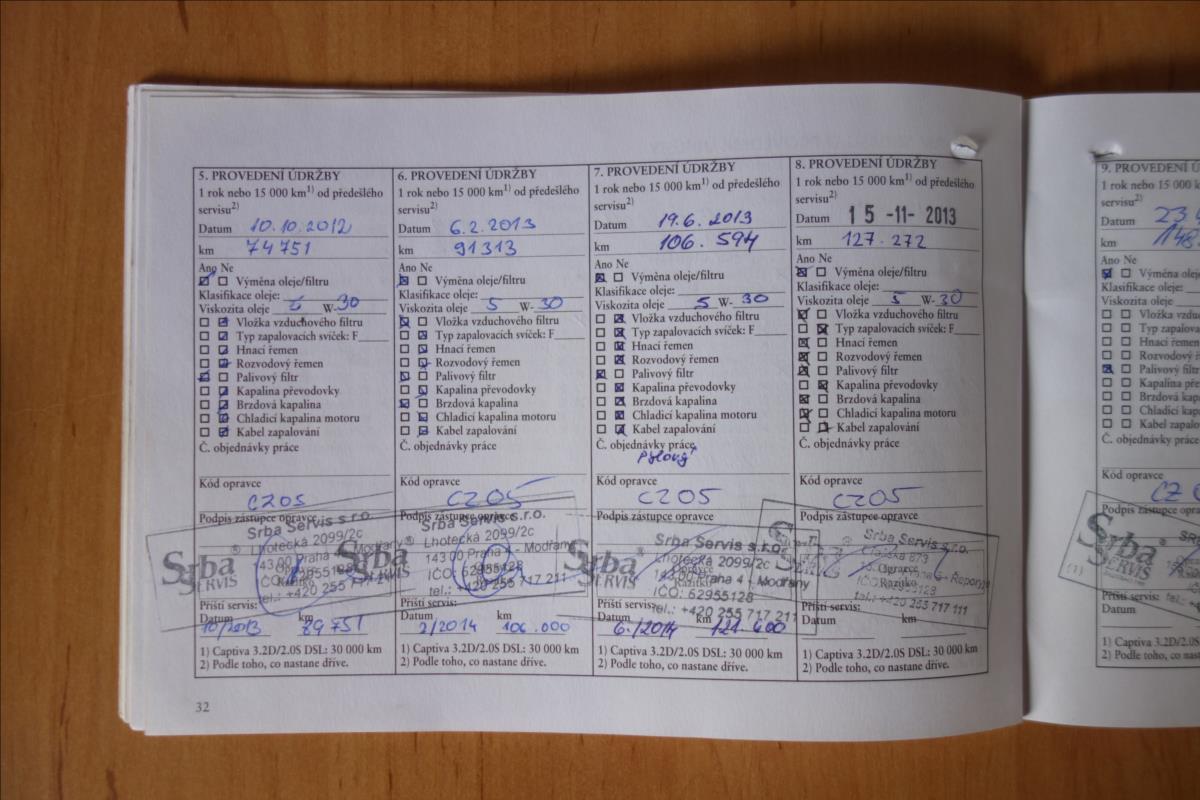 5. PROVEDENÍ ÚDRŽBY
1 rok nebo 15 000 km1) od předešlého
servisu2)
Datum 10.10.2012
km 74751
Ano Ne
Výměna oleje/filtru
Klasifikace oleje:
Viskozita oleje 5 W-30
Vložka vzduchového filtru
Typ zapalovacích svíček: F
Hnací řemen
Rozvodový řemen
Palivový filtr
Kapalina převodovky
Brzdová kapalina
Chladící kapalina motoru
Kabel zapalování
Č. objednávky práce
Kód opravce
CZ05
Podpis zástupce opravce
Srba Servis s.r.o.
Lhotecká 2099/2c
143 00 Praha - Modřany
IČO: 62955128
tel.: +420 255
Srba SERVIS ®
Příští servis:
Datum km
10/2013 89751
1) Captiva 3.2D/2.0S DSL: 30 000 km
2) Podle toho, co nastane dříve.
6. PROVEDENÍ ÚDRŽBY
1 rok nebo 15 000 km1) od předešlého
servisu2)
Datum 6.2.2013
km 91313
Ano Ne
Výměna oleje/filtru
Klasifikace oleje:
Viskozita oleje 5 W-30
Vložka vzduchového filtru
Typ zapalovacích svíček: F
Hnací řemen
Rozvodový řemen
Palivový filtr
Kapalina převodovky
Brzdová kapalina
Chladící kapalina motoru
Kabel zapalování
Č. objednávky práce
Kód opravce
CZ05
Podpis zástupce opravce
Srba Servis s.r.o.
Lhotecká 2099/2c
143 00 Praha - Modřany
IČO: 62955128
tel.: +420 255 717 211
Srba SERVIS ®
Příští servis:
Datum km
2/2014 106.000
1) Captiva 3.2D/2.0S DSL: 30 000 km
2) Podle toho, co nastane dříve.
7. PROVEDENÍ ÚDRŽBY
1 rok nebo 15 000 km1) od předešlého
servisu2)
Datum 19.6.2013
km 106.594
Ano Ne
Výměna oleje/filtru
Klasifikace oleje:
Viskozita oleje 5 W-30
Vložka vzduchového filtru
Typ zapalovacích svíček: F
Hnací řemen
Rozvodový řemen
Palivový filtr
Kapalina převodovky
Brzdová kapalina
Chladící kapalina motoru
Kabel zapalování
Č. objednávky práce
Pylový
Kód opravce
CZ05
Podpis zástupce opravce
Srba Servis s.r.o.
Lhotecká 2099/2c
143 00 Praha 4 - Modřany
IČO: 62955128
tel.: +420 255 717 211
Srba SERVIS ®
Příští servis:
Datum km
6./2014 121.600
1) Captiva 3.2D/2.0S DSL: 30 000 km
2) Podle toho, co nastane dříve.
8. PROVEDENÍ ÚDRŽBY
1 rok nebo 15 000 km1) od předešlého
servisu2)
Datum 15 -11- 2013
km 127.272
Ano Ne
Výměna oleje/filtru
Klasifikace oleje:
Viskozita oleje 5 W-30
Vložka vzduchového filtru
Typ zapalovacích svíček: F
Hnací řemen
Rozvodový řemen
Palivový filtr
Kapalina převodovky
Brzdová kapalina
Chladící kapalina motoru
Kabel zapalování
Č. objednávky práce
Kód opravce
CZ05
Podpis zástupce opravce
Srba Servis s.r.o.
tel.: +420 255 717 111
Příští servis:
Datum km
1) Captiva 3.2D/2.0S DSL: 30 000 km
2) Podle toho, co nastane dříve.
32
9. PROVEDENÍ
1 rok nebo 15 000 km
servisu2)
Datum 23.
km 148
Ano Ne
Výměna oleje
Klasifikace oleje:
Viskozita oleje
Vložka vzduch
Typ zapalovac
Hnací řemen
Rozvodový ře
Palivový filtr
Kapalina přev
Brzdová kapal
Chladící kapa
Kabel zapalov
Č. objednávky práce
Kód opravce
Podpis zástupce opra
Srba SERVIS
Příští servis:
Datum
1) Captiva 3.2D/2.0S
2) Podle toho, co nast